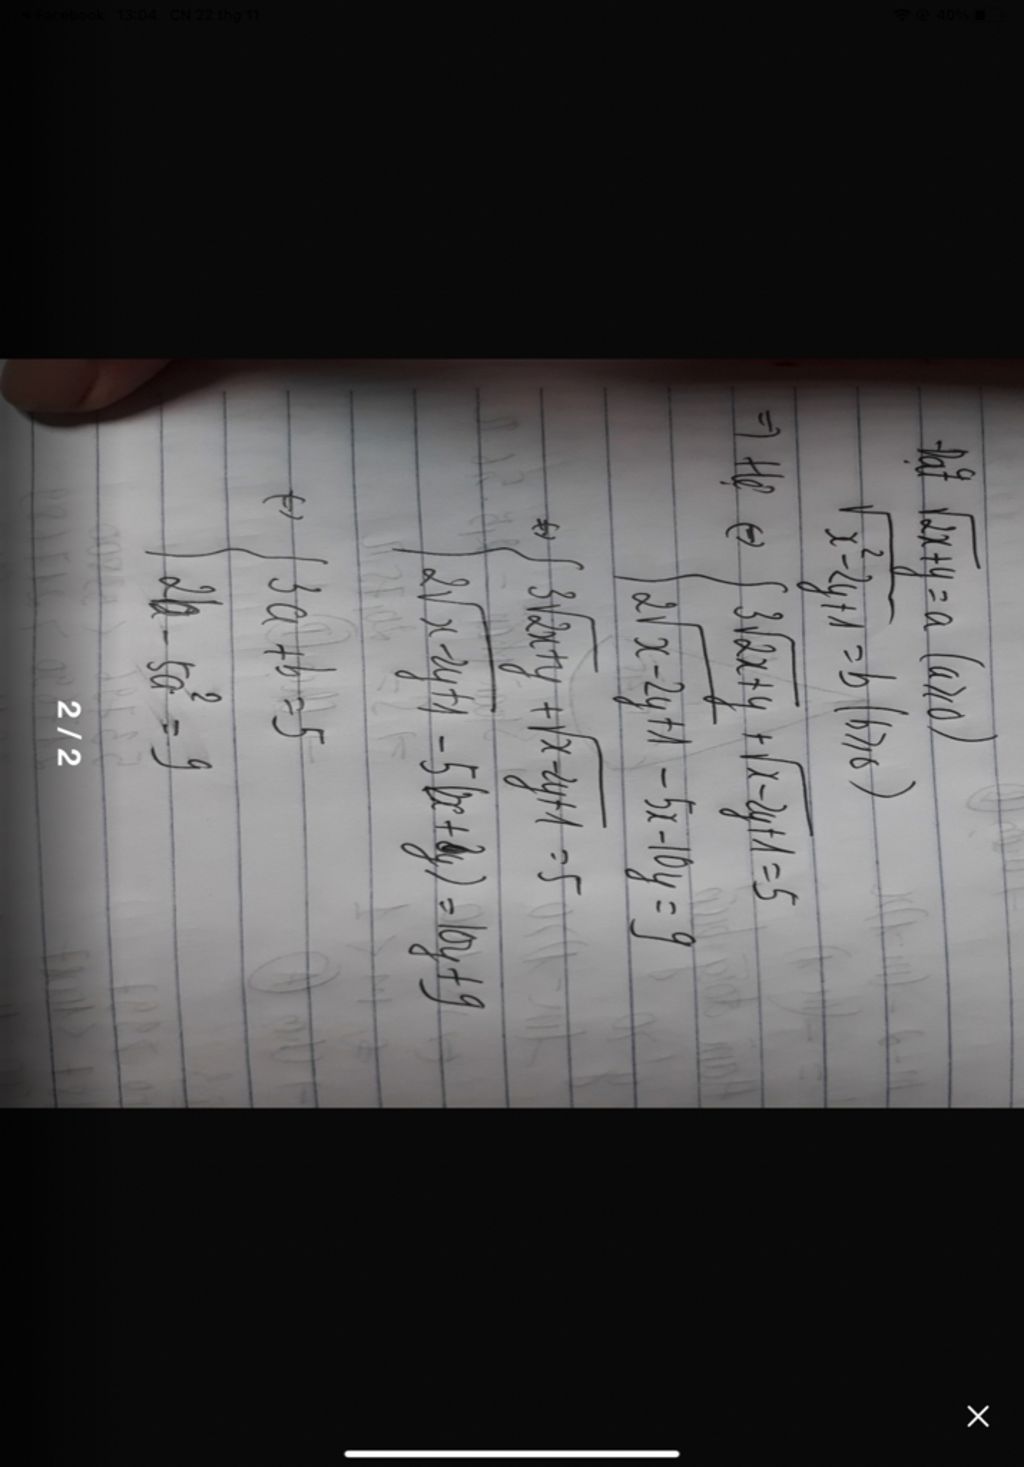 Facebook 13:04 CN 22 thg 11 40%
Đặt √2x+y = a (a≥0)
√x²-2y+1 = b (b≥0)
=> Hệ <=> { 3√2x+y + √x-2y+1 = 5
2√x-2y+1 - 5x-10y = 9
<=> { 3√2x+y + √x-2y+1 = 5
2√x-2y+1 - 5(2x+y) = 10y+9
<=> { 3a+b=5
2b - 5a² = 9
2 / 2